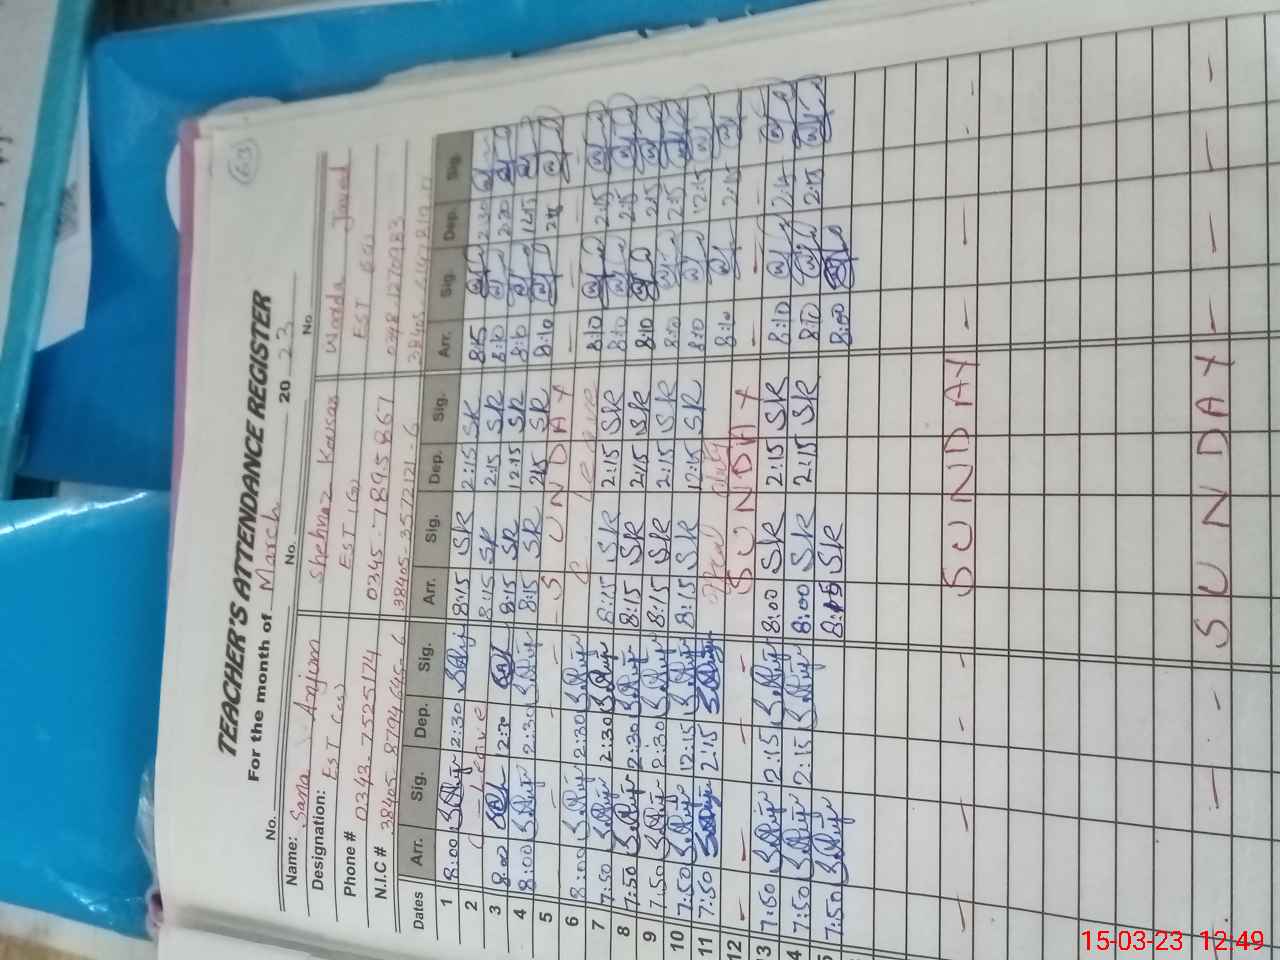 63
TEACHER'S ATTENDANCE REGISTER
For the month of March 2023
No. No. No
Name: Sana Anjum Shehnaz Kausar Warda Javed
Designation: EST EST (G) EST
Phone # 0343-7525174 0345-7895867
N.I.C # 38405-8794646-6 38405-3572121-6
Dates Arr. Sig. Dep. Sig. Arr. Sig. Dep. Sig. Arr. Sig. Dep. Sig.
1 8:00 2:30 8:15 SR 2:15 SR 8:15 2:30
2 C-leave 8:15 SR 2:15 SR 8:10 2:30
3 8:00 2:30 8:15 SR 12:15 SR 8:10 12:15
4 8:00 2:30 8:15 SR 2:15 SR 8:10 2:15
5 — — SUNDAY — —
6 8:00 2:30 C leave 8:10 2:15
7 7:50 2:30 8:15 SR 2:15 SR 8:10 2:15
8 7:50 2:30 8:15 SR 2:15 SR 8:10 2:15
9 7:50 2:30 8:15 SR 2:15 SR 8:10 2:15
10 7:50 12:15 8:15 SR 12:15 SR 8:10 12:15
11 7:50 2:15 duty 8:10 2:15
12 — — SUNDAY — —
13 7:50 2:15 8:00 SR 2:15 SR 8:10 2:15
14 7:50 2:15 8:00 SR 2:15 SR 8:10 2:15
7:50 8:15 SR 8:00
— — — SUNDAY — — —
— — SUNDAY — — — —
15-03-23 12:49